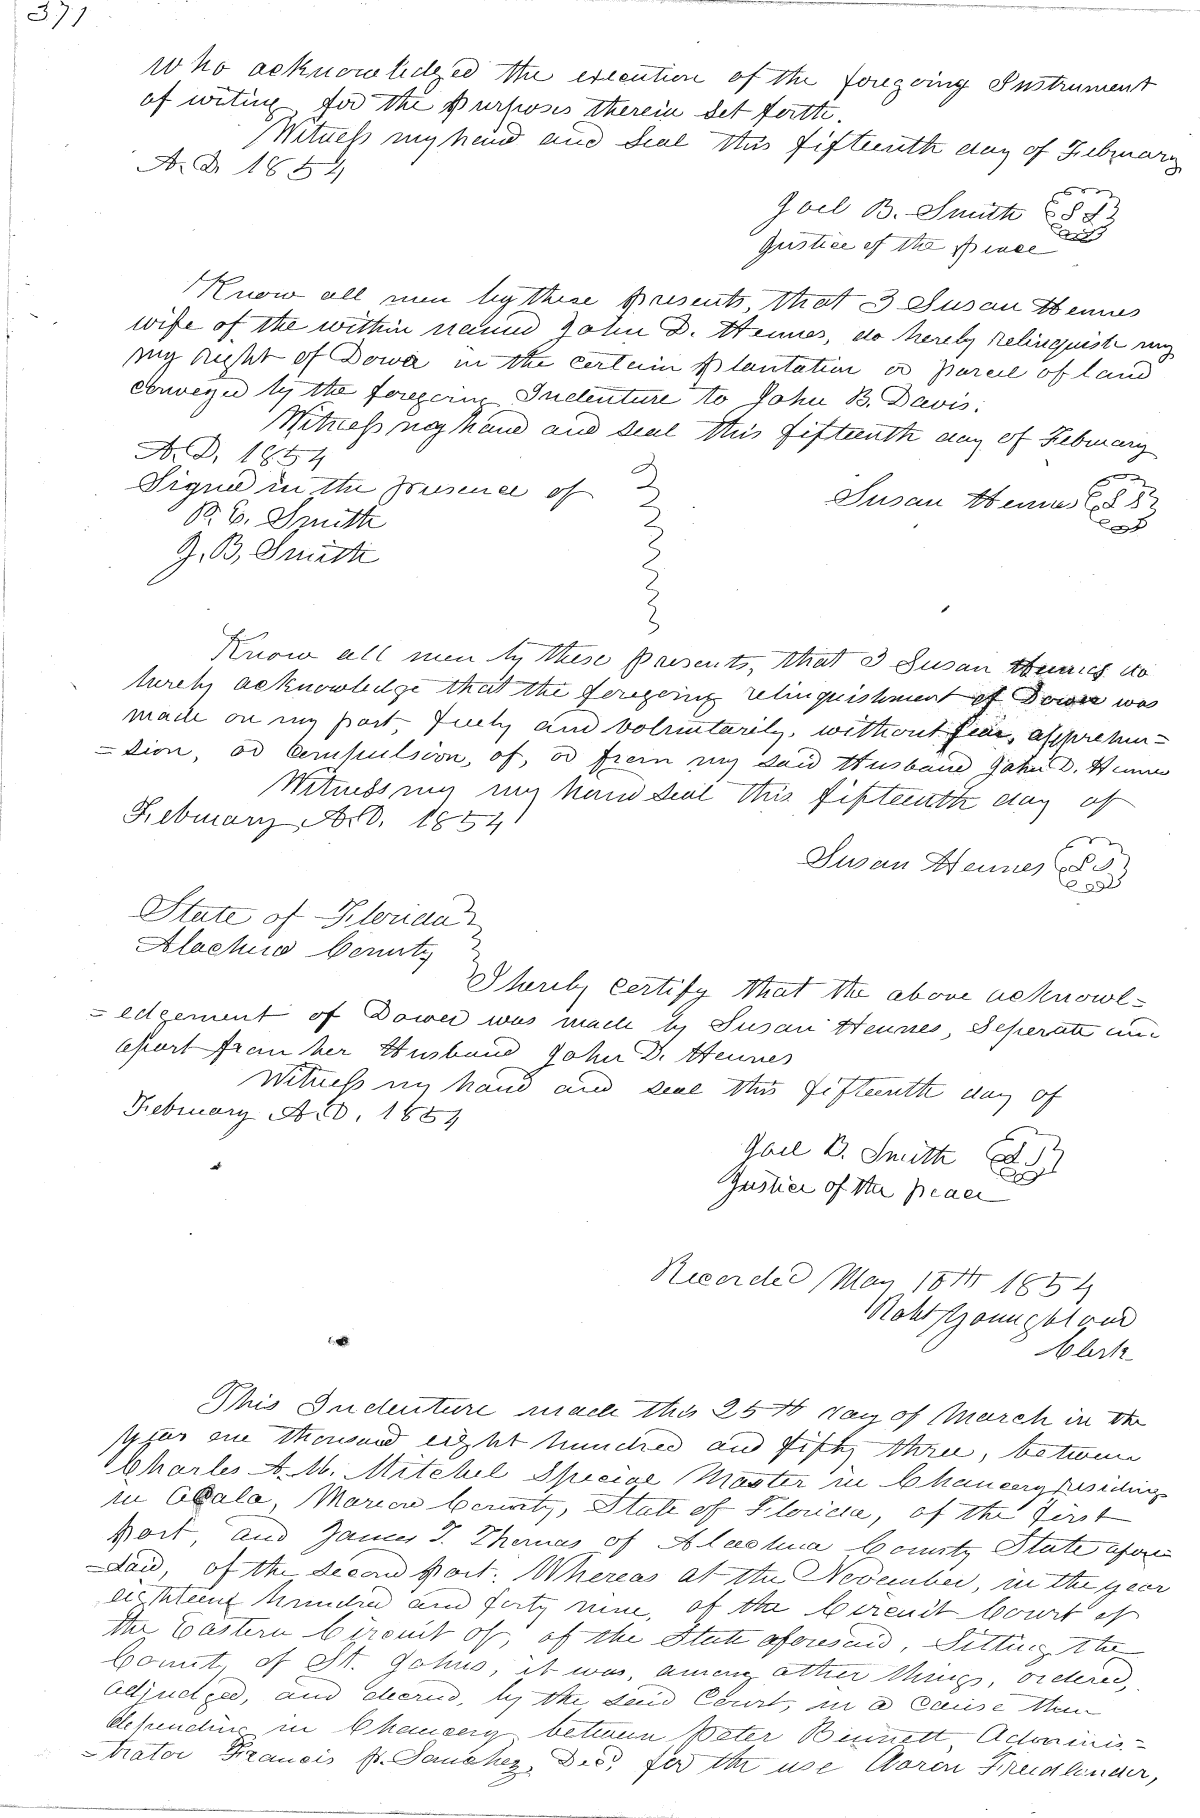 371
who acknowledged the execution of the foregoing Instrument
of writing, for the purposes therein set forth.
Witness my hand and Seal this fifteenth day of February
A. D. 1854
Joel B. Smith
Justice of the peace
Know all men by these presents, that I Susan Hennes
wife of the within named John D. Hennes, do hereby relinquish my
my right of Dower in the certain plantation or parcel of land
conveyed by the foregoing Indenture to John B. Davis.
Witness my hand and seal this fifteenth day of February
A. D. 1854
Signed in the presence of
Susan Hennes
R. C. Smith
J. B. Smith
Know all men by these presents, that I Susan Hennes do
hereby acknowledge that the foregoing relinquishment of Dower was
made on my part, freely and voluntarily, without fear, apprehen=
=sion, or compulsion, of, or from my said Husband John D. Hennes
Witness my my hand seal this fifteenth day of
February A. D. 1854
Susan Hennes
State of Florida
Alachua County
I hereby certify that the above acknowl=
=edgement of Dower was made by Susan Hennes, Seperate and
apart from her Husband John D. Hennes
Witness my hand and seal this fifteenth day of
February A. D. 1854
Joel B. Smith
Justice of the peace
Recorded May 10th 1854
Robt Youngblood
Clerk
This Indenture made this 25th day of March in the
year one thousand eight hundred and fifty three, between
Charles A. M. Mitchel Special Master in Chancery residing
in Ocala, Marion County, State of Florida, of the first
part, and James T. Thomas of Alachua County State afore
=said, of the second part. Whereas at the November, in the year
eighteen hundred and forty nine, of the Circuit Court of
the Eastern Circuit of, of the State aforesaid, Sitting the
County of St. Johns, it was, among other things, ordered,
adjudged, and decreed, by the said Court, in a cause then
depending in Chancery between Peter Bennett, Adminis=
=trator Francis P. Sanchez, Decd, for the use Aaron Friedlander,